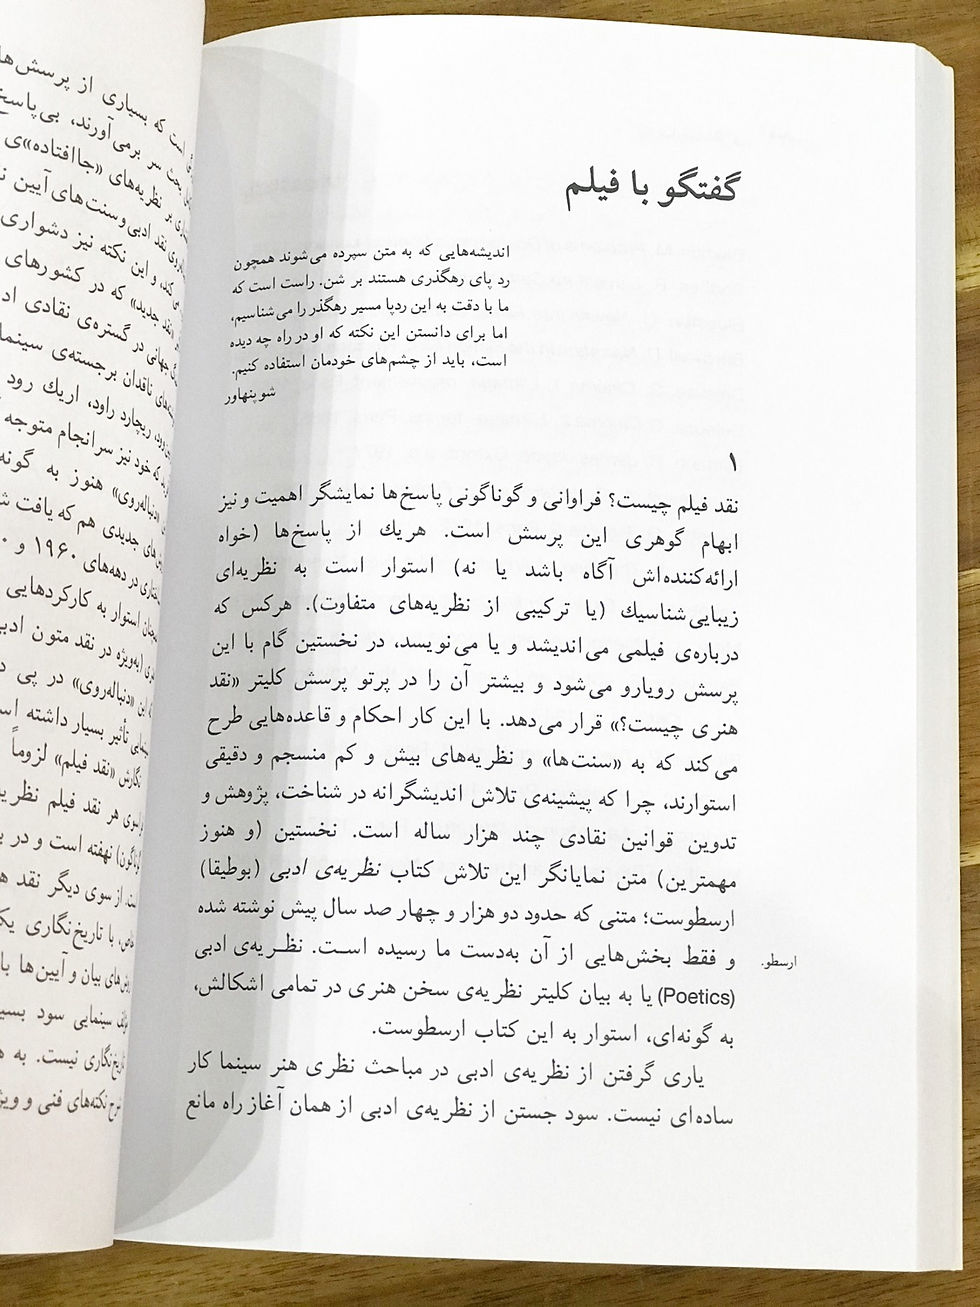 گفتگو با فیلم
اندیشه‌هایی که به متن سپرده می‌شوند همچون
رد پای رهگذری هستند بر شن. راست است که
ما با دقت به این ردپا مسیر رهگذر را می‌شناسیم،
اما برای دانستن این نکته که او در راه چه دیده
است، باید از چشم‌های خودمان استفاده کنیم.
شوپنهاور
۱
نقد فیلم چیست؟ فراوانی و گوناگونی پاسخ‌ها نمایشگر اهمیت و نیز
ابهام گوهری این پرسش است. هریك از پاسخ‌ها (خواه
ارائه‌کننده‌اش آگاه باشد یا نه) استوار است به نظریه‌ای
زیبایی‌شناسیك (یا ترکیبی از نظریه‌های متفاوت). هرکس که
درباره‌ی فیلمی می‌اندیشد و یا می‌نویسد، در نخستین گام با این
پرسش رویارو می‌شود و بیشتر آن را در پرتو پرسش کلیتر «نقد
هنری چیست؟» قرار می‌دهد. با این کار احکام و قاعده‌هایی طرح
می‌کند که به «سنت‌ها» و نظریه‌های بیش و کم منسجم و دقیقی
استوارند، چرا که پیشینه‌ی تلاش اندیشگرانه در شناخت، پژوهش و
تدوین قوانین نقادی چند هزار ساله است. نخستین (و هنوز
مهمترین) متن نمایانگر این تلاش کتاب نظریه‌ی ادبی (بوطیقا)
ارسطوست؛ متنی که حدود دو هزار و چهار صد سال پیش نوشته شده
و فقط بخش‌هایی از آن به‌دست ما رسیده است. نظریه‌ی ادبی
ارسطو.
(Poetics) یا به بیان کلیتر نظریه‌ی سخن هنری در تمامی اشکالش،
به گونه‌ای، استوار به این کتاب ارسطوست.
یاری گرفتن از نظریه‌ی ادبی در مباحث نظری هنر سینما کار
ساده‌ای نیست. سود جستن از نظریه‌ی ادبی از همان آغاز راه مانع
است که بسیاری از پرسش‌ها
بحث سر برمی‌آورند، بی‌پاسخ
بر نظریه‌های «جاافتاده»ی
نقد ادبی و سنت‌های آیین
و این نکته نیز دشواری
«نقد جدید» که در کشورهای
جهانی در گستره‌ی نقادی
ناقدان برجسته‌ی سینما
ریچارد راود، اریك رود
که خود نیز سرانجام متوجه
«دنباله‌روی» هنوز به
های جدیدی هم که یافت
در دهه‌های ۱۹۶۰ و
استوار به کارکردهایی
(به‌ویژه در نقد متون
این «دنباله‌روی» در پی
تأثیر بسیار داشته
نگارش «نقد فیلم» لزوماً
هر نقد فیلم
نهفته است و در
از سوی دیگر نقد
با تاریخ‌نگاری
های بیان و آیین‌ها
سینمایی سود
تاریخ‌نگاری نیست. به
نکته‌های فنی و